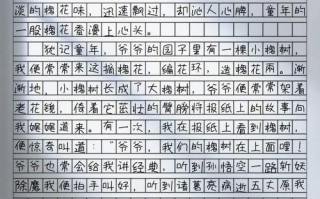 淡的槐花味，迅速飘过，却沁人心脾，童年的
一股槐花香漫上心头。
犹记童年，爷爷的园子里有一棵小槐树，
我便常常来这摘槐花，编花环，造槐花雨。渐
渐地，小槐树长成了大槐树，爷爷便常常架着
老花镜，倚着它茁壮的臂膀将报纸上的故事向
我娓娓道来。有一次，我在报纸上看到槐树，
便惊奇叫道：“爷爷，我们的槐树在上面哩！
爷爷也常会给我讲经典，听到孙悟空一路斩妖
除魔我便拍手叫好，听到诸葛亮病逝五丈原我